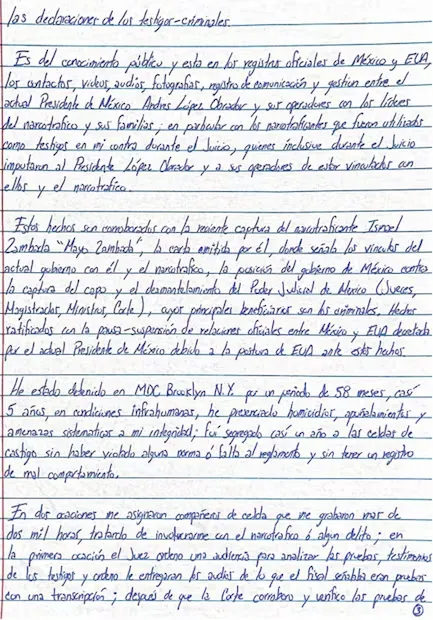 las declaraciones de los testigos-criminales.
Es del conocimiento público y esta en los registros oficiales de México y EUA,
los contactos, videos, audios, fotografias, registro de comunicación y gestion entre el
actual Presidente de México Andres López Obrador y sus operadores con los líderes
del narcotrafico y sus familias; en particular con los narcotraficantes que fueron utilizados
como testigos en mi contra durante el Juicio, quienes inclusive durante el Juicio
imputaron al Presidente López Obrador y a sus operadores de estar vinculados con
ellos y el narcotrafico.
Estos hechos son corroborados con la reciente captura del narcotraficante Ismael
Zambada "Mayo Zambada", la carta emitida por él, donde señala los vinculos del
actual gobierno con él y el narcotrafico, la posición del gobierno de México contra
la captura del capo y el desmantelamiento del Poder Judicial de México (Jueces,
Magistrados, Ministros, Corte), cuyos principales beneficiarios son los criminales. Hechos
ratificados con la pausa-suspensión de relaciones oficiales entre México y EUA decretada
por el actual Presidente de México debido a la postura de EUA ante estos hechos.
He estado detenido en MDC Brooklyn N.Y. por un periodo de 58 meses, casí
5 años, en condiciones infrahumanas, he presenciado homicidios, apuñalamientos y
amenazas sistematicas a mi integridad; fuí segregado casí un año a las celdas de
castigo sin haber violado alguna norma ó falta al reglamento y sin tener un registro
de mal comportamiento.
En dos ocaciones me asignaron compañeros de celda que me grabaron mas de
dos mil horas, tratando de involucrarme con el narcotrafico ó algun delito; en
la primera ocación el Juez ordeno una audiencia para analizar las pruebas, testimonios
de los testigos y ordeno le entregaran los audios de lo que el fiscal señalaba eran pruebas
con una transcripción; después de que la Corte corroboro y verifico las pruebas de
3